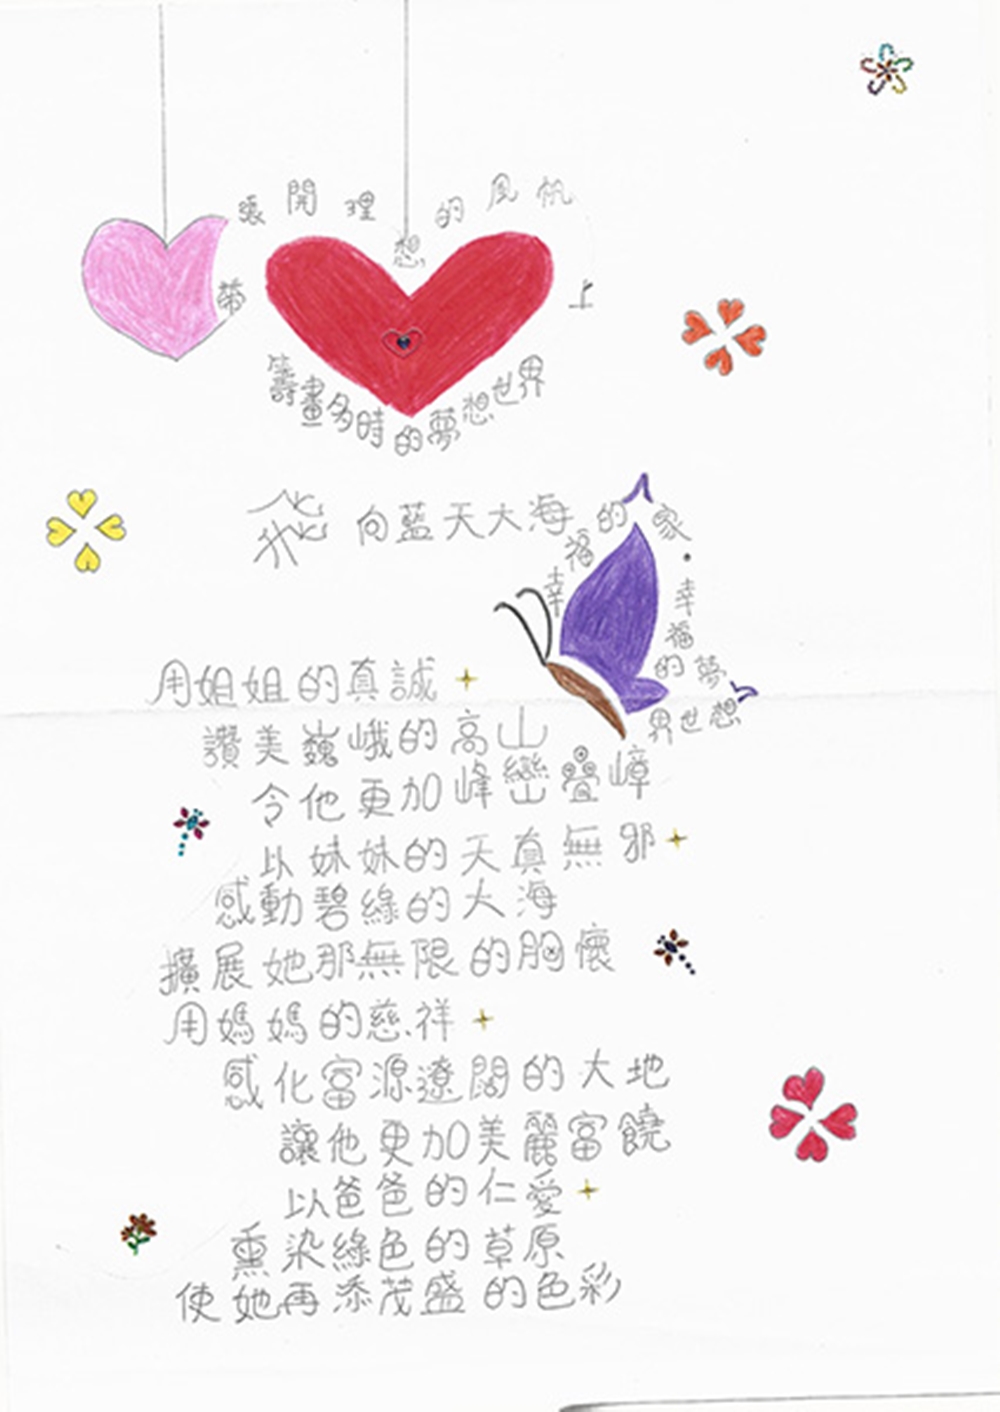 張開理想的風帆
帶上
籌畫多時的夢想世界
飛向藍天大海
幸福的家・幸福的夢想世界
用姐姐的真誠
讚美巍峨的高山
令他更加峰巒疊嶂
以妹妹的天真無邪
感動碧綠的大海
擴展她那無限的胸懷
用媽媽的慈祥
感化富源遼闊的大地
讓他更加美麗富饒
以爸爸的仁愛
熏染綠色的草原
使她再添茂盛的色彩